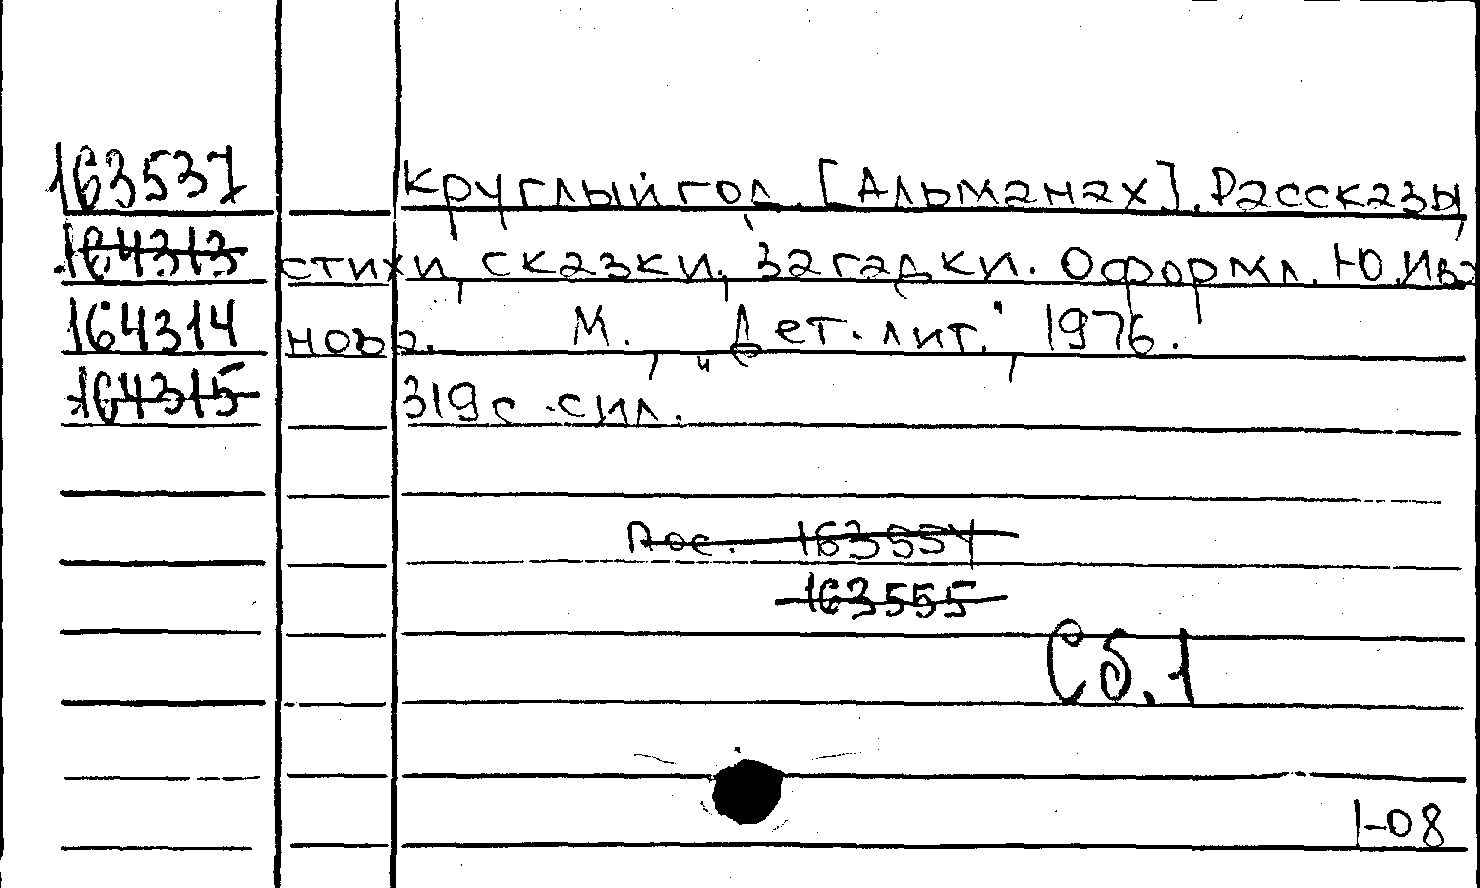 163537 Круглый год. [Альманах]. Рассказы,
164313 стихи, сказки, загадки. Оформл. Ю. Ива
164314 нова. М., "Дет. лит.", 1976.
164315 319 с. с ил.
163554
163555
Сб. 1
1-08